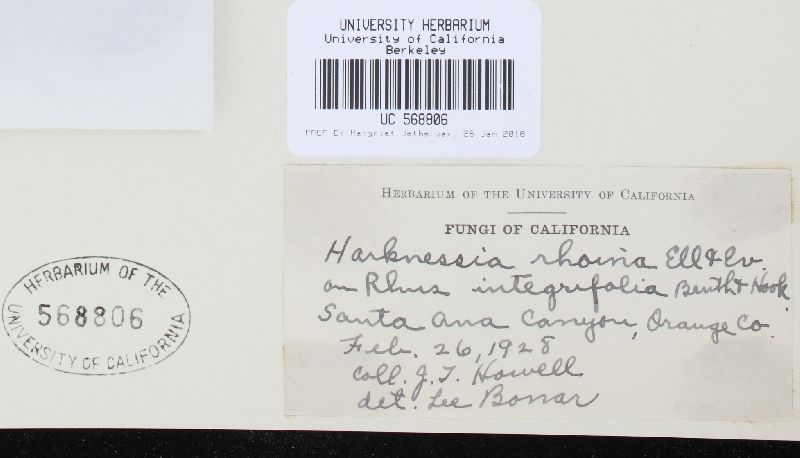 UNIVERSITY HERBARIUM
University of California
Berkeley
UC 568806
25 Jan 2018
HERBARIUM OF THE UNIVERSITY OF CALIFORNIA
FUNGI OF CALIFORNIA
Harknessia rhoina Ell & Ev.
on Rhus integrifolia Benth & Hook
Santa Ana Canyon, Orange Co.
Feb. 26, 1928
coll. J. T. Howell
det. Lee Bonar
HERBARIUM OF THE
568806
UNIVERSITY OF CALIFORNIA